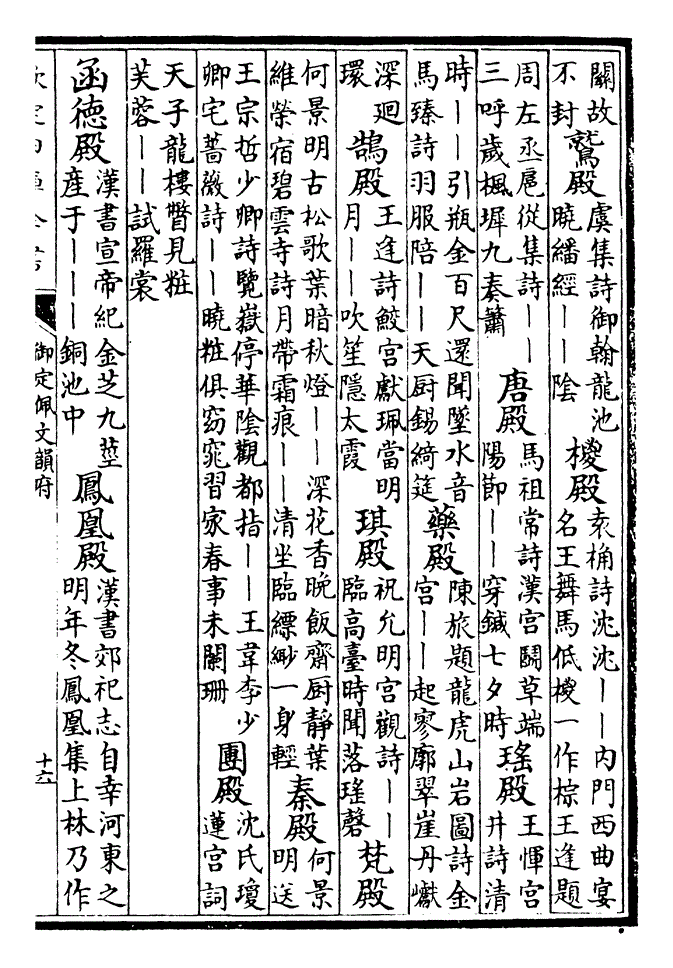 闗故
不封
鷲殿
虞集詩御翰龍池
曉繙經——陰
椶殿
袁桷詩沈沈——内門西曲宴
名王舞馬低椶一作棕王逢題
周左丞扈從集詩——
三呼歲楓墀九奏簫
唐殿
馬祖常詩漢宫鬭草端
陽節——穿鍼七夕時
瑤殿
王惲宫
井詩清
時——引瓶金百尺還聞墜水音
馬臻詩羽服陪——天厨錫綺筵
藥殿
陳旅題龍虎山岩圖詩金
宫——起寥廓翠崖丹巘
深迴
環
鵠殿
王逢詩鮫宫獻珮當明
月——吹笙隱太霞
琪殿
祝允明宫觀詩——
臨高臺時聞落瑤磬
梵殿
何景明古松歌葉暗秋燈——深花香晚飯齋厨靜葉
維榮宿碧雲寺詩月帶霜痕——清坐臨縹緲一身輕
秦殿
何景
明送
王宗哲少卿詩覽嶽停華陰觀都指——王韋李少
卿宅薔薇詩——曉粧俱窈窕習家春事未闌珊
團殿
沈氏瓊
蓮宫詞
天子龍樓瞥見粧
芙蓉——試羅裳
函德殿
漢書宣帝紀金芝九莖
産于———銅池中
鳳凰殿
漢書郊祀志自幸河東之
明年冬鳳凰集上林乃作
欽定四庫全書
御定佩文韻府
十六